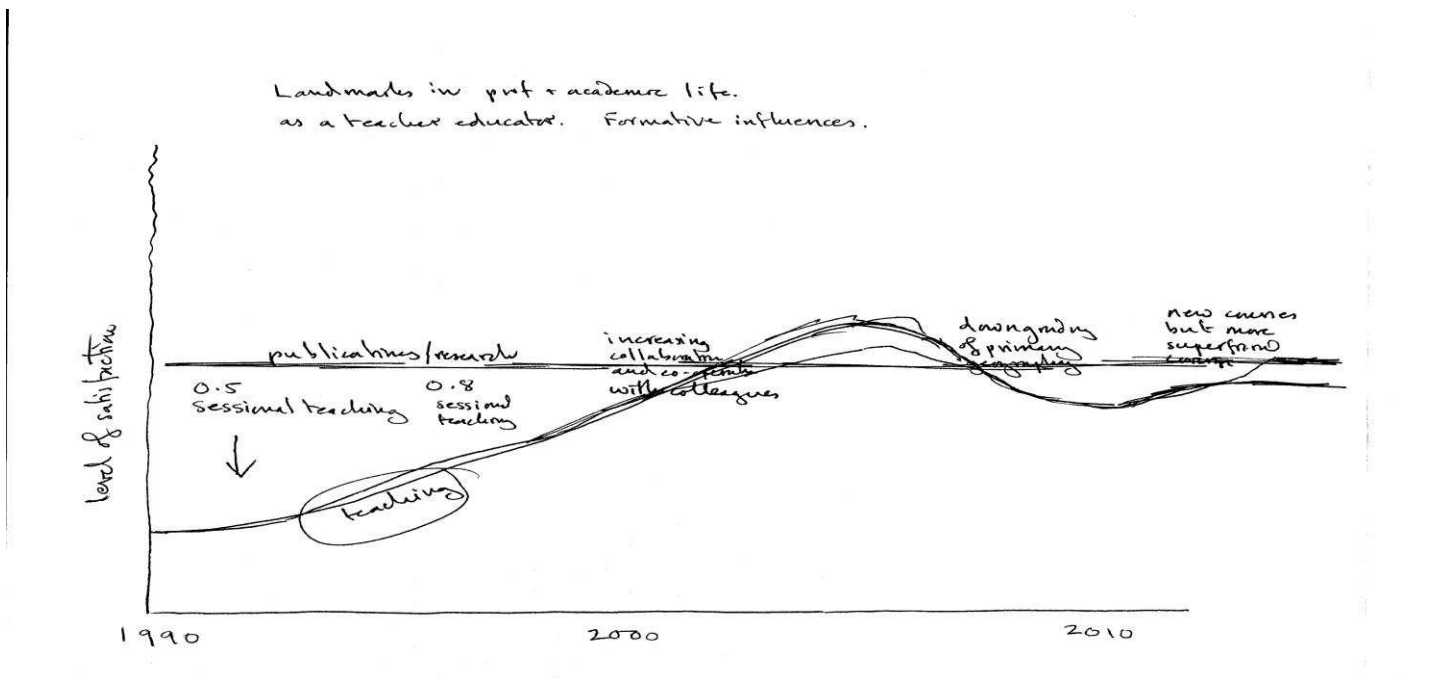 Landmarks in prof + academic life.
as a teacher educator. Formative influences.
level of satisfaction
publications/research
0.5
sessional teaching
0.8
sessional
teaching
increasing
collaboration
and co-
with colleagues
downgrading
of primary
geography
new courses
but more
superficial
teaching
1990
2000
2010